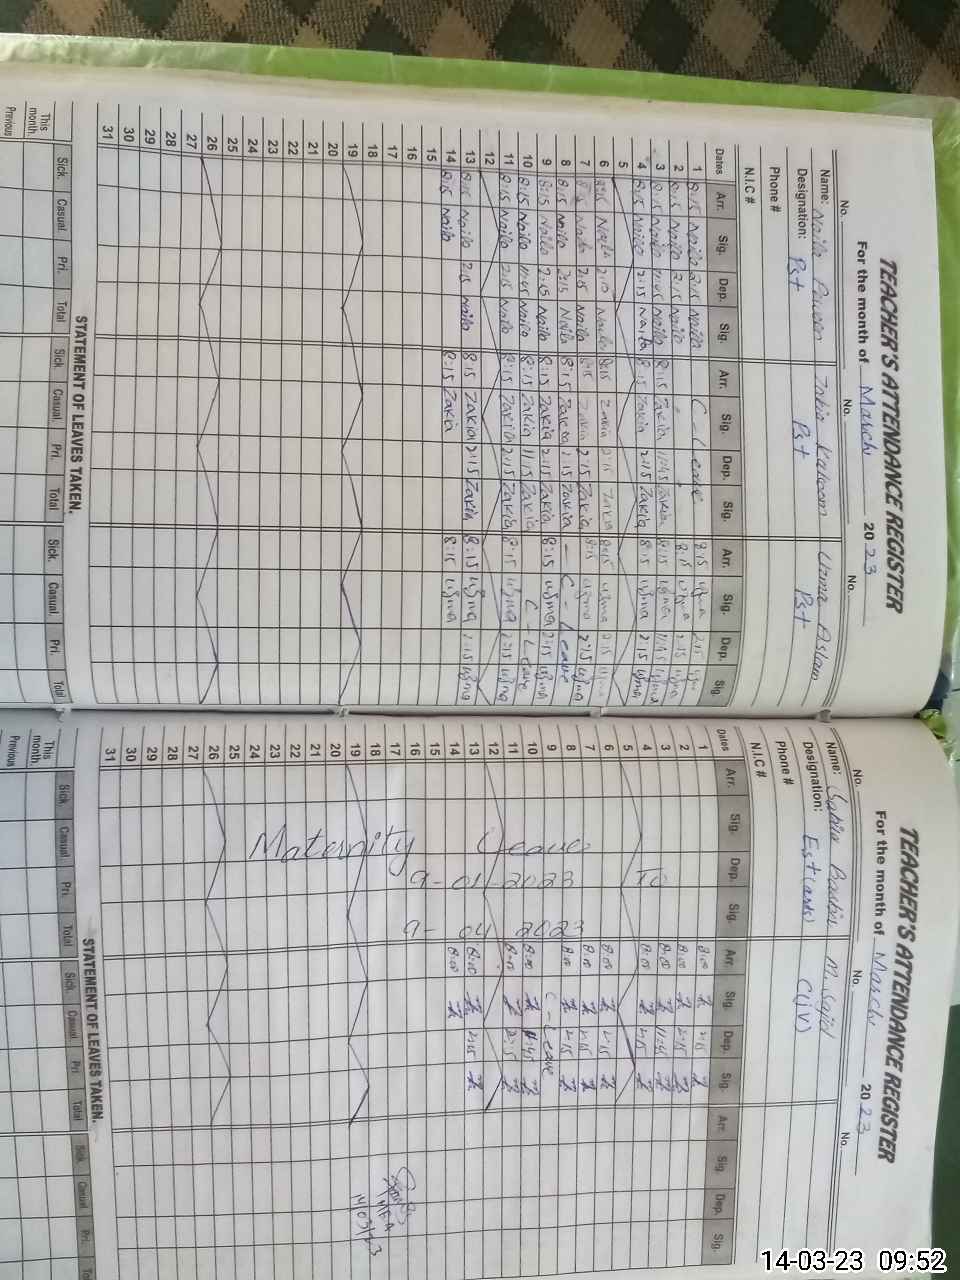 TEACHER'S ATTENDANCE REGISTER
For the month of March 2023
No. No. No.
Name: Naila Parveen Zakia Kalsoom Uzma Aslam
Designation: Pst Pst Pst
Phone #
N.I.C #
Dates Arr. Sig. Dep. Sig. Arr. Sig. Dep. Sig. Arr. Sig. Dep. Sig.
1 8:15 Naila 2:15 Naila C-Leave 8:15 uzma 2:15
2 8:15 Naila 2:15 Naila 8:15 uzma 2:15 uzma
3 8:15 Naila 11:45 Naila 8:15 Zakia 11:45 Zakia 8:15 uzma 11:45 uzma
4 8:15 Naila 2:15 Naila 8:15 Zakia 2:15 Zakia 8:15 uzma 2:15 uzma
5
6 8:15 Naila 2:10 Naila 8:15 Zakia 2:15 Zakia 8:15 uzma 2:15 uzma
7 Naila 2:15 Naila 8:15 Zakia 2:15 Zakia 8:15 uzma 2:15 uzma
8 8:15 Naila 2:15 Naila 8:15 Zakia 2:15 Zakia - C - Leave
9 8:15 Naila 2:15 Naila 8:15 Zakia 2:15 Zakia 8:15 uzma 2:15 uzma
10 8:15 Naila 11:45 Naila 8:15 Zakia 11:15 Zakia C-Leave
11 8:15 Naila 2:15 Naila 8:15 Zakia 2:15 Zakia 8:15 uzma 2:15 uzma
12
13 8:15 Naila 2:15 Naila 8:15 Zakia 2:15 Zakia 8:15 uzma 2:15 uzma
14 8:15 Naila 8:15 Zakia 8:15 uzma
15
16
17
18
19
20
21
22
23
24
25
26
27
28
29
30
31
STATEMENT OF LEAVES TAKEN.
Sick. Casual. Pri. Total Sick. Casual. Pri. Total Sick. Casual. Pri. Total
This month.
Previous
TEACHER'S ATTENDANCE REGISTER
For the month of March 2023
No. No. No.
Name: Bashir M. Sajid
Designation: Est(arts) C(iv)
Phone #
N.I.C #
Dates Arr. Sig. Dep. Sig. Arr. Sig. Dep. Sig. Arr. Sig. Dep. Sig.
1 8:00 2:15
2 8:00 2:15
3 8:00 11:45
4 8:00 2:15 To
5
6 8:00 2:15
7 8:00 2:15
8 8:00 2:15
9 C-Leave
10 8:00 11:45
11 8:00 2:15
12
13 8:00 2:15
14 8:00
15
16
17
18
19
20
21
22
23
24
25
26
27
28
29
30
31
Maternity Leave
9-01-2023
9-04 2023
14/03/23
STATEMENT OF LEAVES TAKEN.
Sick. Casual. Pri. Total Sick. Casual. Pri. Total Sick. Casual. Pri.
This month.
Previous
14-03-23 09:52